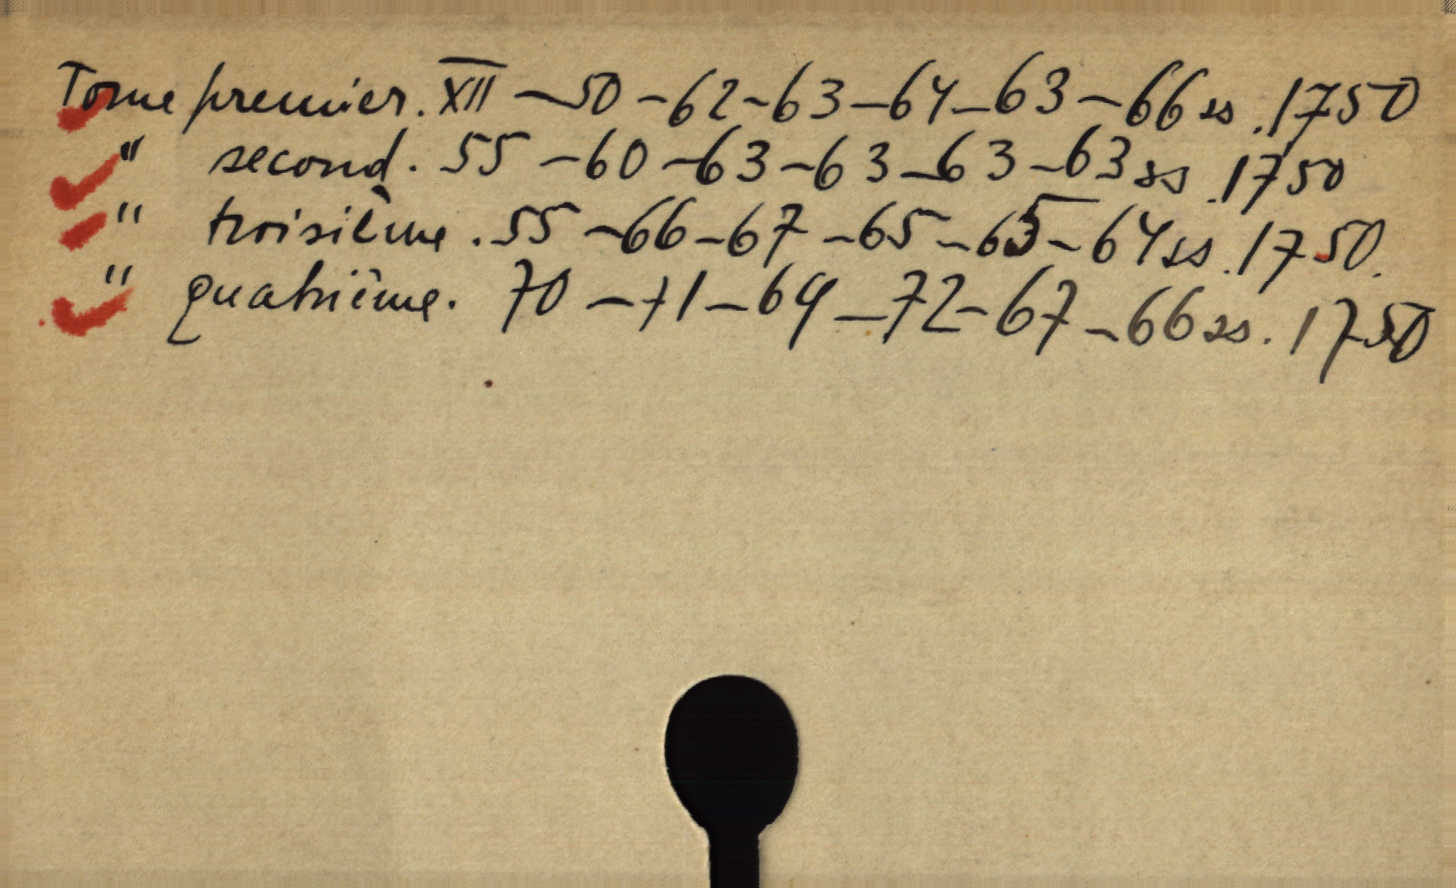 Tome premier. XII - 50 - 62 - 63 - 64 - 63 - 66 ss. 1750
" second. 55 - 60 - 63 - 63 - 63 - 63 ss. 1750
" troisième. 55 - 66 - 67 - 65 - 65 - 64 ss. 1750.
" quatrième. 70 - 71 - 69 - 72 - 67 - 66 ss. 1750